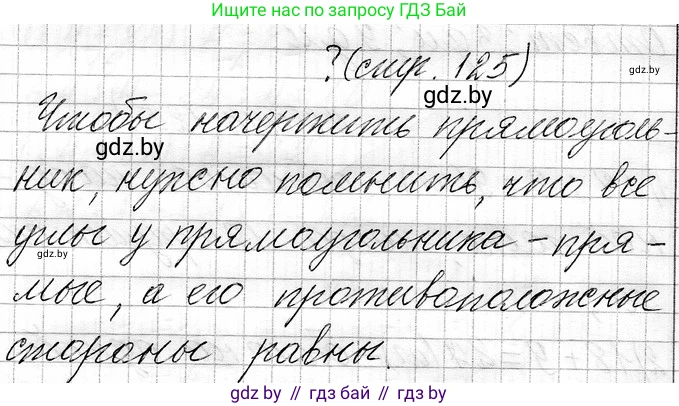 Ищите нас по запросу ГДЗ Бай
?(стр. 125)
gdz.by
gdz.by
Чтобы начертить прямоуголь-
gdz.by
ник, нужно помнить, что все
углы у прямоугольника - пря-
gdz.by
мые, а его противоположные
стороны равны.
gdz.by // гдз бай // гдз by